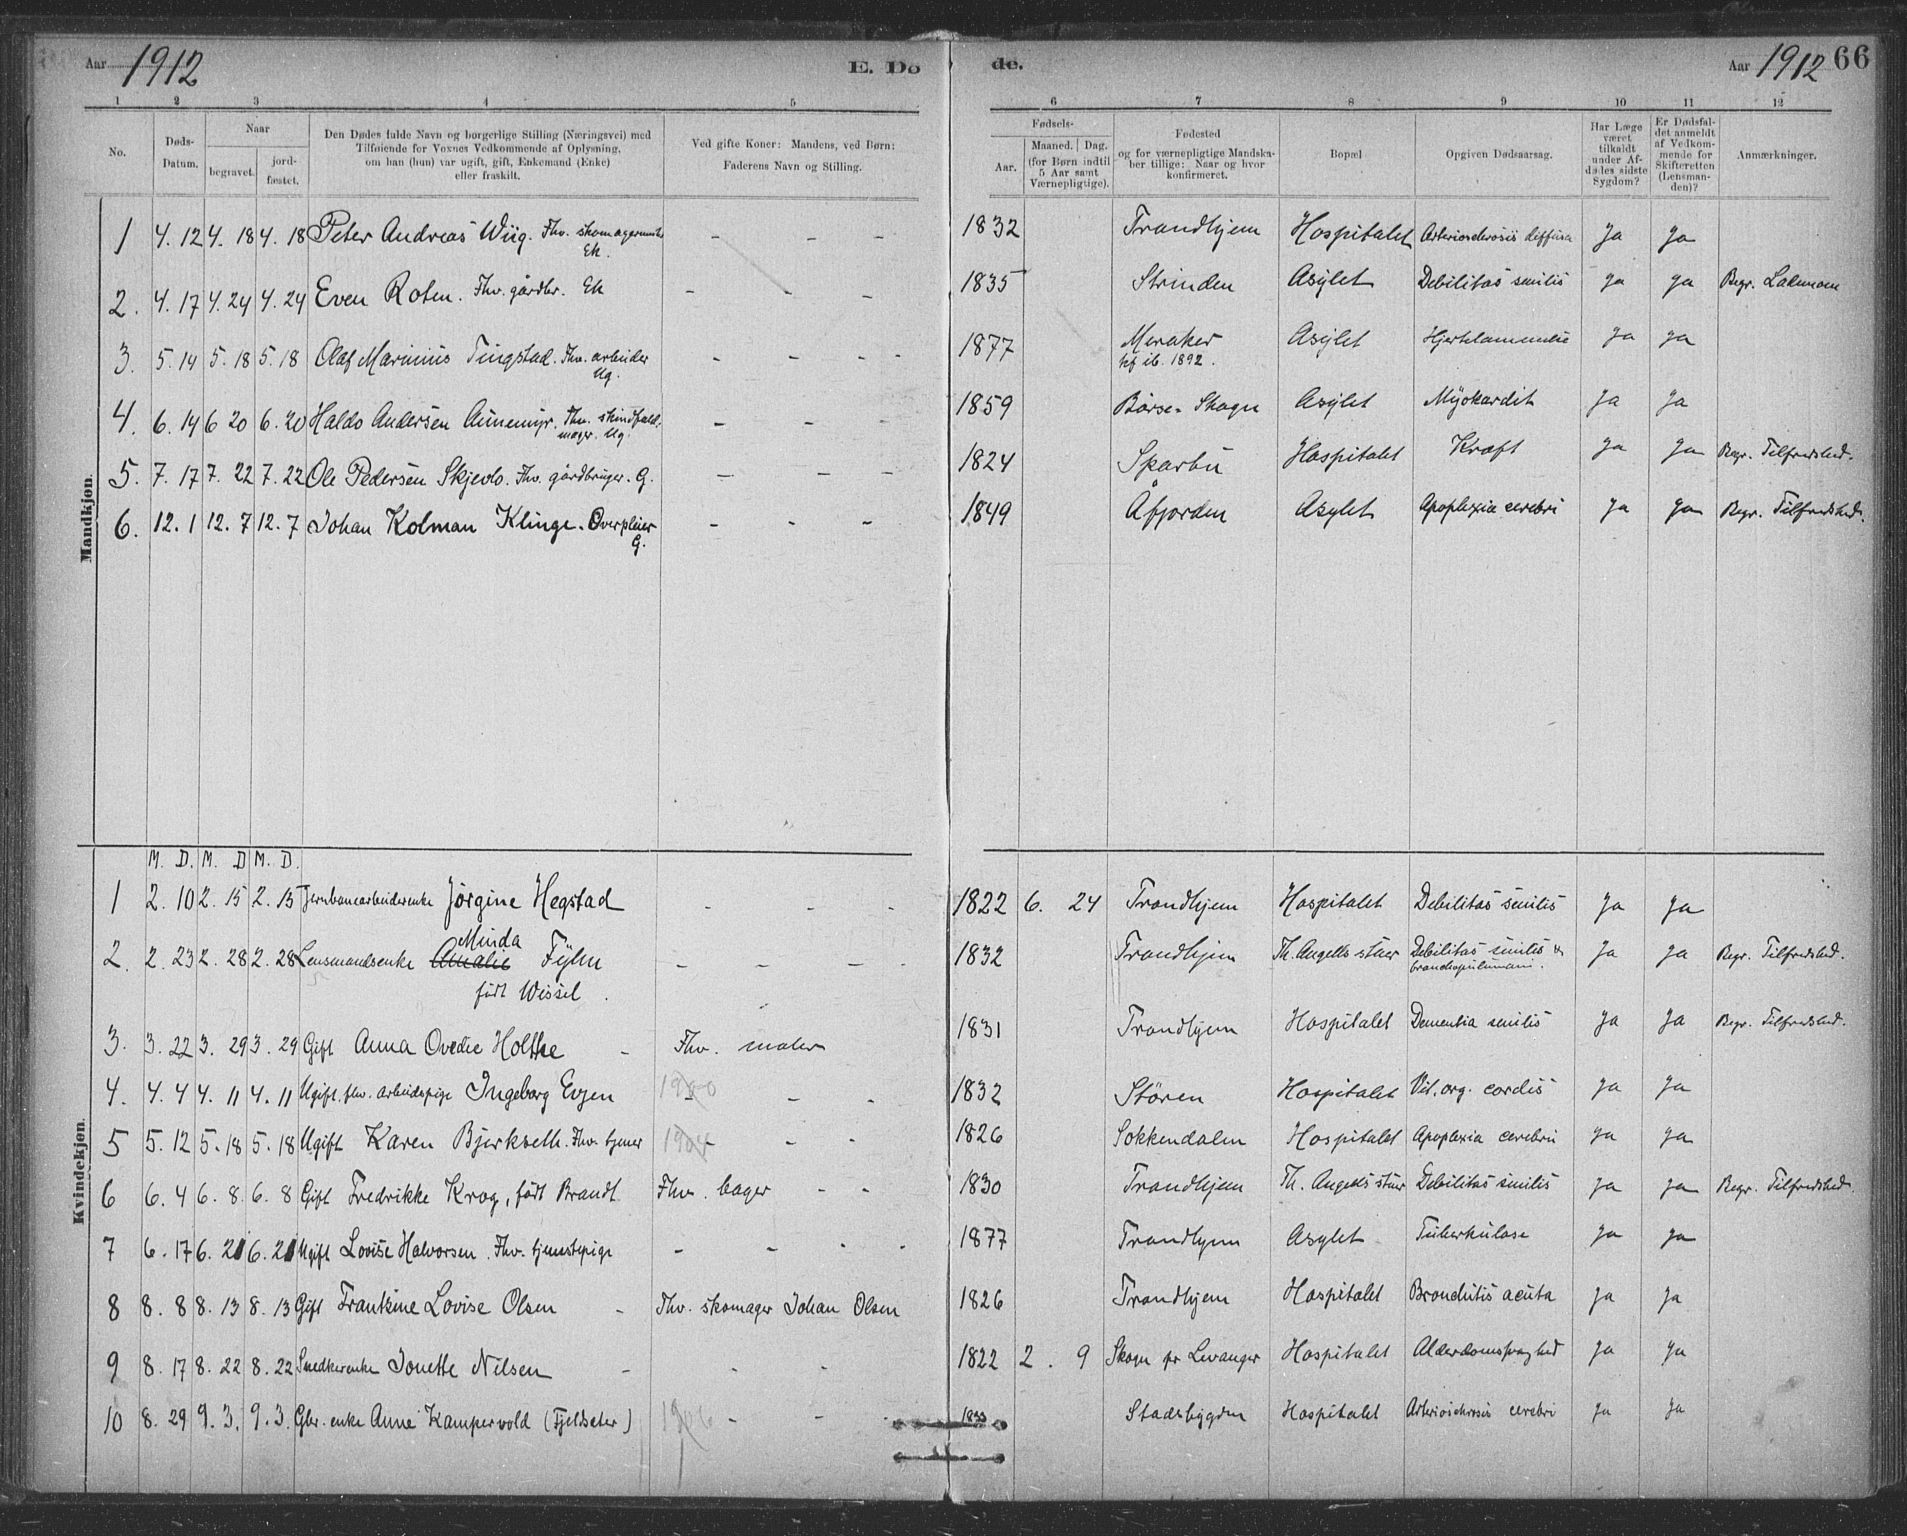 Aar 1912 E. Dø de. Aar 1912 66
1 2 3 4 5 6 7 8 9 10 11 12
No.
Døds-Datum.
Naar
begravet.
jord-fæstet.
Den Dødes fulde Navn og borgerlige Stilling (Næringsvei) med
Tilføiende for Voxnes Vedkommende af Oplysning,
om han (hun) var ugift, gift, Enkemand (Enke)
eller fraskilt.
Ved gifte Koner: Mandens, ved Børn:
Faderens Navn og Stilling.
Fødsels-
Aar.
Maaned. Dag.
(for Børn indtil
5 Aar samt
Værnepligtige).
Fødested
og for værnepligtige Mandska-
ber tillige: Naar og hvor
konfirmeret.
Bopæl
Opgiven Dødsaarsag.
Har Læge
været
tilkaldt
under Af-
dødes sidste
Sygdom?
Er Dødsfal-
det anmeldt
af Vedkom-
mende for
Skifteretten
(Lensman-
den)?
Anmærkninger.
Mandkjøn.
1 4. 12 4. 18 4. 18 Peter Andreas Wiig. Fhv. skomagermester Ek. - - - 1832 Trondhjem Hospitalet Arteriosclerosis diffusa Ja Ja
2. 4. 17 4. 24 4. 24 Even Roten. Fhv. gårdbr. Ek - - - 1835 Strinden Asylet Debilitas senilis Ja Ja Begr. Lademoen
3. 5. 14 5. 18 5. 18 Olaf Marinius Tingstad. Fhv. arbeider Ug. - - - - 1877 Meraker Asylet Hjertelammelse Ja Ja
kf ib. 1892.
4. 6. 14 6 20 6. 20 Haldo Andersen Aunemyr. Fhv. skindfeld- mager. Ug. - - - 1859 Börse-Skogn Asylet Myokardit Ja Ja
5. 7. 17 7. 22 7. 22 Ole Pedersen Skjevlo. Fhv. gårdbruger. G. - - - 1824 Sparbu Hospitalet Kræft Ja Ja Begr. Tilfredshed.
6. 12. 1 12. 7 12. 7 Johan Kolman Klinge. Overpleier G. - - - 1849 Åfjorden Asylet Apoplexia cerebri Ja Ja Begr. Tilfredshed.
Kvindekjøn.
M. D. M. D M. D.
1 2. 10 2. 15 2. 15 Jernbanearbeiderenke Jørgine Hegstad - - - 1822 6. 24 Trondhjem Hospitalet Debilitas senilis Ja Ja
Minda
2. 2. 23 2. 28 2. 28 Lensmandsenke Amalie Fylm - - - - 1832 Trondhjem Th. Angells stuer Debilitas senilis & Ja Ja Begr. Tilfredshed.
født Wissel.
3. 3. 22 3. 29 3. 29 Gift Anna Ovedie Holtke - Fhv. maler 1831 Trondhjem Hospitalet Dementia senilis Ja Ja Begr. Tilfredshed.
4. 4. 4 4. 11 4. 11 Ugift. fhv. arbeidspige Ingeborg Evjen 1900 - - 1832 Stören Hospitalet Vit. org. cordis Ja Ja
5 5. 12 5. 18 5. 18 Ugift Karen Bjerkseth. Fhv. tjener 1904 - - 1826 Sokkendalen Hospitalet Apoplexia cerebri Ja Ja
6 6. 4 6. 8. 6. 8 Gift Fredrikke Krog, født Brandt. Fhv. bager - - 1830 Trondhjem Th. Angells stuer Debilitas senilis Ja Ja Begr. Tilfredshed
7 6. 17 6. 21 6. 21 Ugift Lovise Halvorsen. Fhv. tjenestepige - - - - 1877 Trondhjem Asylet Tuberkulose Ja Ja
8 8. 8 8. 13 8. 13 Gift Frantzine Lovise Olsen - Fhv. skomager Johan Olsen 1826 Trondhjem Hospitalet Bronchitis acuta Ja Ja
9 8. 17 8. 22 8. 22 Snedkerenke Jonette Nilsen - - - 1822 2. 9 Skogn pr Levanger Hospitalet Alderdomssvaghed Ja Ja
10 8. 29 9. 3. 9. 3. Gbr. enke Anne Kampervold (Fjeldseter) 1906 - - 1833 Stadsbygden Hospitalet Arteriosclerosis cerebri Ja Ja